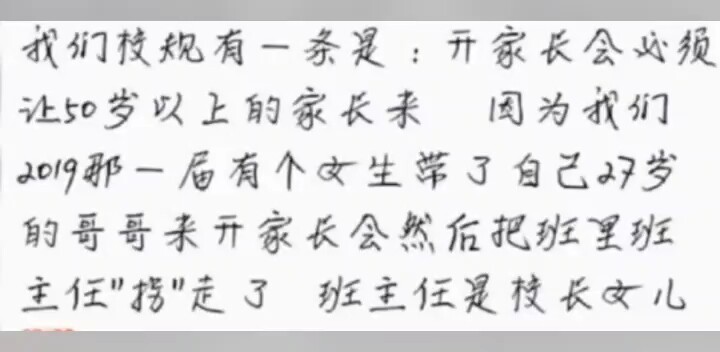 我们校规有一条是：开家长会必须
让50岁以上的家长来 因为我们
2019那一届有个女生带了自己27岁
的哥哥来开家长会然后把班里班
主任"拐"走了 班主任是校长女儿